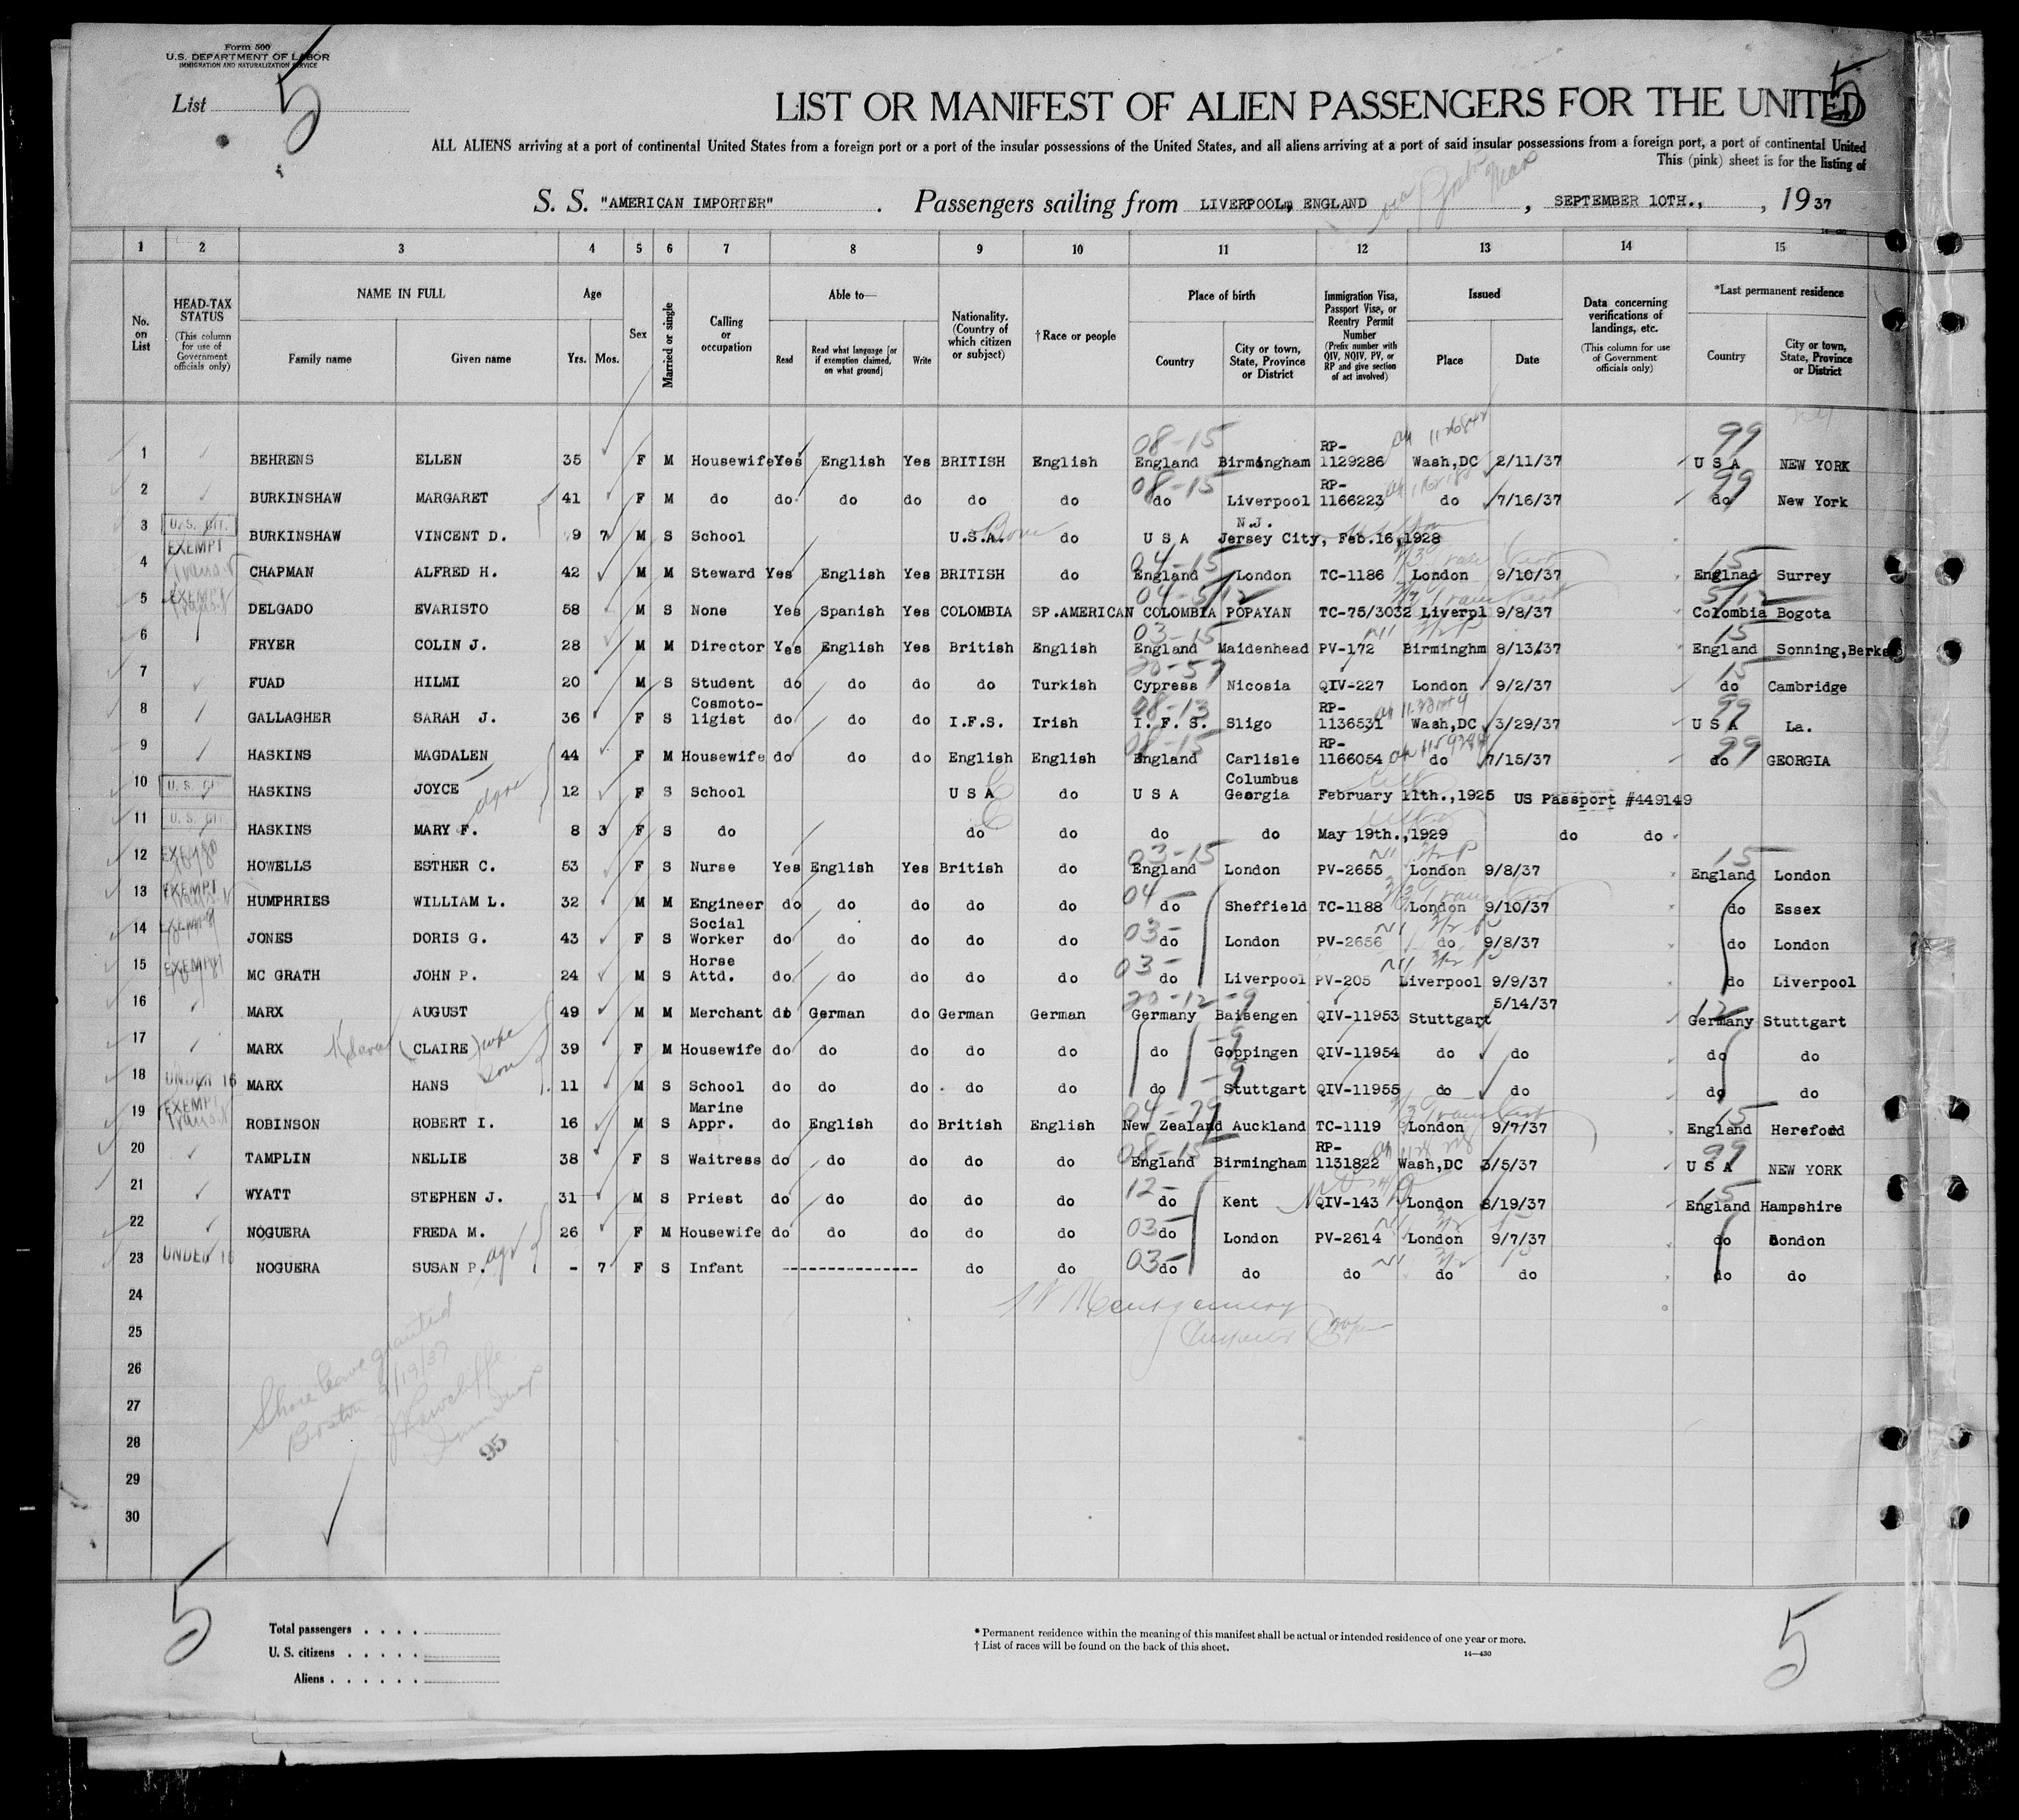 Form 500
U.S. DEPARTMENT OF LABOR
IMMIGRATION AND NATURALIZATION SERVICE
List 5
5
LIST OR MANIFEST OF ALIEN PASSENGERS FOR THE UNITED
ALL ALIENS arriving at a port of continental United States from a foreign port or a port of the insular possessions of the United States, and all aliens arriving at a port of said insular possessions from a foreign port, a port of continental United
This (pink) sheet is for the listing of
S. S. "AMERICAN IMPORTER" . Passengers sailing from LIVERPOOL, ENGLAND , SEPTEMBER 10TH., , 19 37
1 2 3 4 5 6 7 8 9 10 11 12 13 14 15
No. on List
HEAD-TAX STATUS (This column for use of Government officials only)
NAME IN FULL
Family name Given name
Age
Yrs. Mos.
Sex
Married or single
Calling or occupation
Able to—
Read
Read what language [or if exemption claimed, on what ground]
Write
Nationality. (Country of which citizen or subject)
† Race or people
Place of birth
Country
City or town, State, Province or District
Immigration Visa, Passport Visa, or Reentry Permit Number (Prefix number with QIV, NQIV, PV, or RP and give section of act involved)
Issued
Place Date
Data concerning verifications of landings, etc. (This column for use of Government officials only)
*Last permanent residence
Country
City or town, State, Province or District
08-15 RP- 99
1 BEHRENS ELLEN 35 F M Housewife Yes English Yes BRITISH English England Birmingham 1129286 Wash,DC 2/11/37 U S A NEW YORK
08-15 RP- 99
2 BURKINSHAW MARGARET 41 F M do do do do do do do Liverpool 1166223 do 7/16/37 do New York
U. S. CIT. N.J.
3 BURKINSHAW VINCENT D. 9 7 M S School U.S.A. do U S A Jersey City, Feb.16,1928
EXEMPT 04-15 15
4 CHAPMAN ALFRED H. 42 M M Steward Yes English Yes BRITISH do England London TC-1186 London 9/10/37 Englnad Surrey
EXEMPT 04-5/12 5/12
5 DELGADO EVARISTO 58 M S None Yes Spanish Yes COLOMBIA SP.AMERICAN COLOMBIA POPAYAN TC-75/3032 Liverpl 9/8/37 Colombia Bogota
03-15 15
6 FRYER COLIN J. 28 M M Director Yes English Yes British English England Maidenhead PV-172 Birminghm 8/13/37 England Sonning,Berks
20-57 15
7 FUAD HILMI 20 M S Student do do do do Turkish Cypress Nicosia QIV-227 London 9/2/37 do Cambridge
Cosmoto- 08-13 RP- 99
8 GALLAGHER SARAH J. 36 F S ligist do do do I.F.S. Irish I. F. S. Sligo 1136531 Wash,DC 3/29/37 U S A La.
08-15 RP- 99
9 HASKINS MAGDALEN 44 F M Housewife do do do English English England Carlisle 1166054 do 7/15/37 do GEORGIA
U. S. CIT Columbus
10 HASKINS JOYCE 12 F S School U S A do U S A Georgia February 11th.,1925 US Passport #449149
U. S. CIT.
11 HASKINS MARY F. 8 3 F S do do do do do May 19th.,1929 do do
03-15 15
12 HOWELLS ESTHER C. 53 F S Nurse Yes English Yes British do England London PV-2655 London 9/8/37 England London
EXEMPT 04-
13 HUMPHRIES WILLIAM L. 32 M M Engineer do do do do do do Sheffield TC-1188 London 9/10/37 do Essex
Social 03-
14 JONES DORIS G. 43 F S Worker do do do do do do London PV-2656 do 9/8/37 do London
EXEMPT Horse 03-
15 MC GRATH JOHN P. 24 M S Attd. do do do do do do Liverpool PV-205 Liverpool 9/9/37 do Liverpool
20-12-9 5/14/37 12
16 MARX AUGUST 49 M M Merchant do German do German German Germany Baisengen QIV-11953 Stuttgart Germany Stuttgart
-9
17 MARX (CLAIRE) wife 39 F M Housewife do do do do do do Goppingen QIV-11954 do do do do
UNDER 16 son -9
18 MARX HANS 11 M S School do do do do do do Stuttgart QIV-11955 do do do do
EXEMPT Marine 15
19 ROBINSON ROBERT I. 16 M S Appr. do English do British English New Zealand Auckland TC-1119 London 9/7/37 England Hereford
08-15 RP- 99
20 TAMPLIN NELLIE 38 F S Waitress do do do do do England Birmingham 1131822 Wash,DC 3/5/37 U S A NEW YORK
12- 15
21 WYATT STEPHEN J. 31 M S Priest do do do do do do Kent QIV-143 London 8/19/37 England Hampshire
03-
22 NOGUERA FREDA M. 26 F M Housewife do do do do do do London PV-2614 London 9/7/37 do London
UNDER 16 03-
23 NOGUERA SUSAN P. - 7 F S Infant ---------------- do do do do do do do do do
24
25
26
27
28
29
30
Montgomery
Shore leave granted
Boston 9/19/37
95
5 5
Total passengers . . . .
U. S. citizens . . . . .
Aliens . . . . . .
* Permanent residence within the meaning of this manifest shall be actual or intended residence of one year or more.
† List of races will be found on the back of this sheet.
14—430